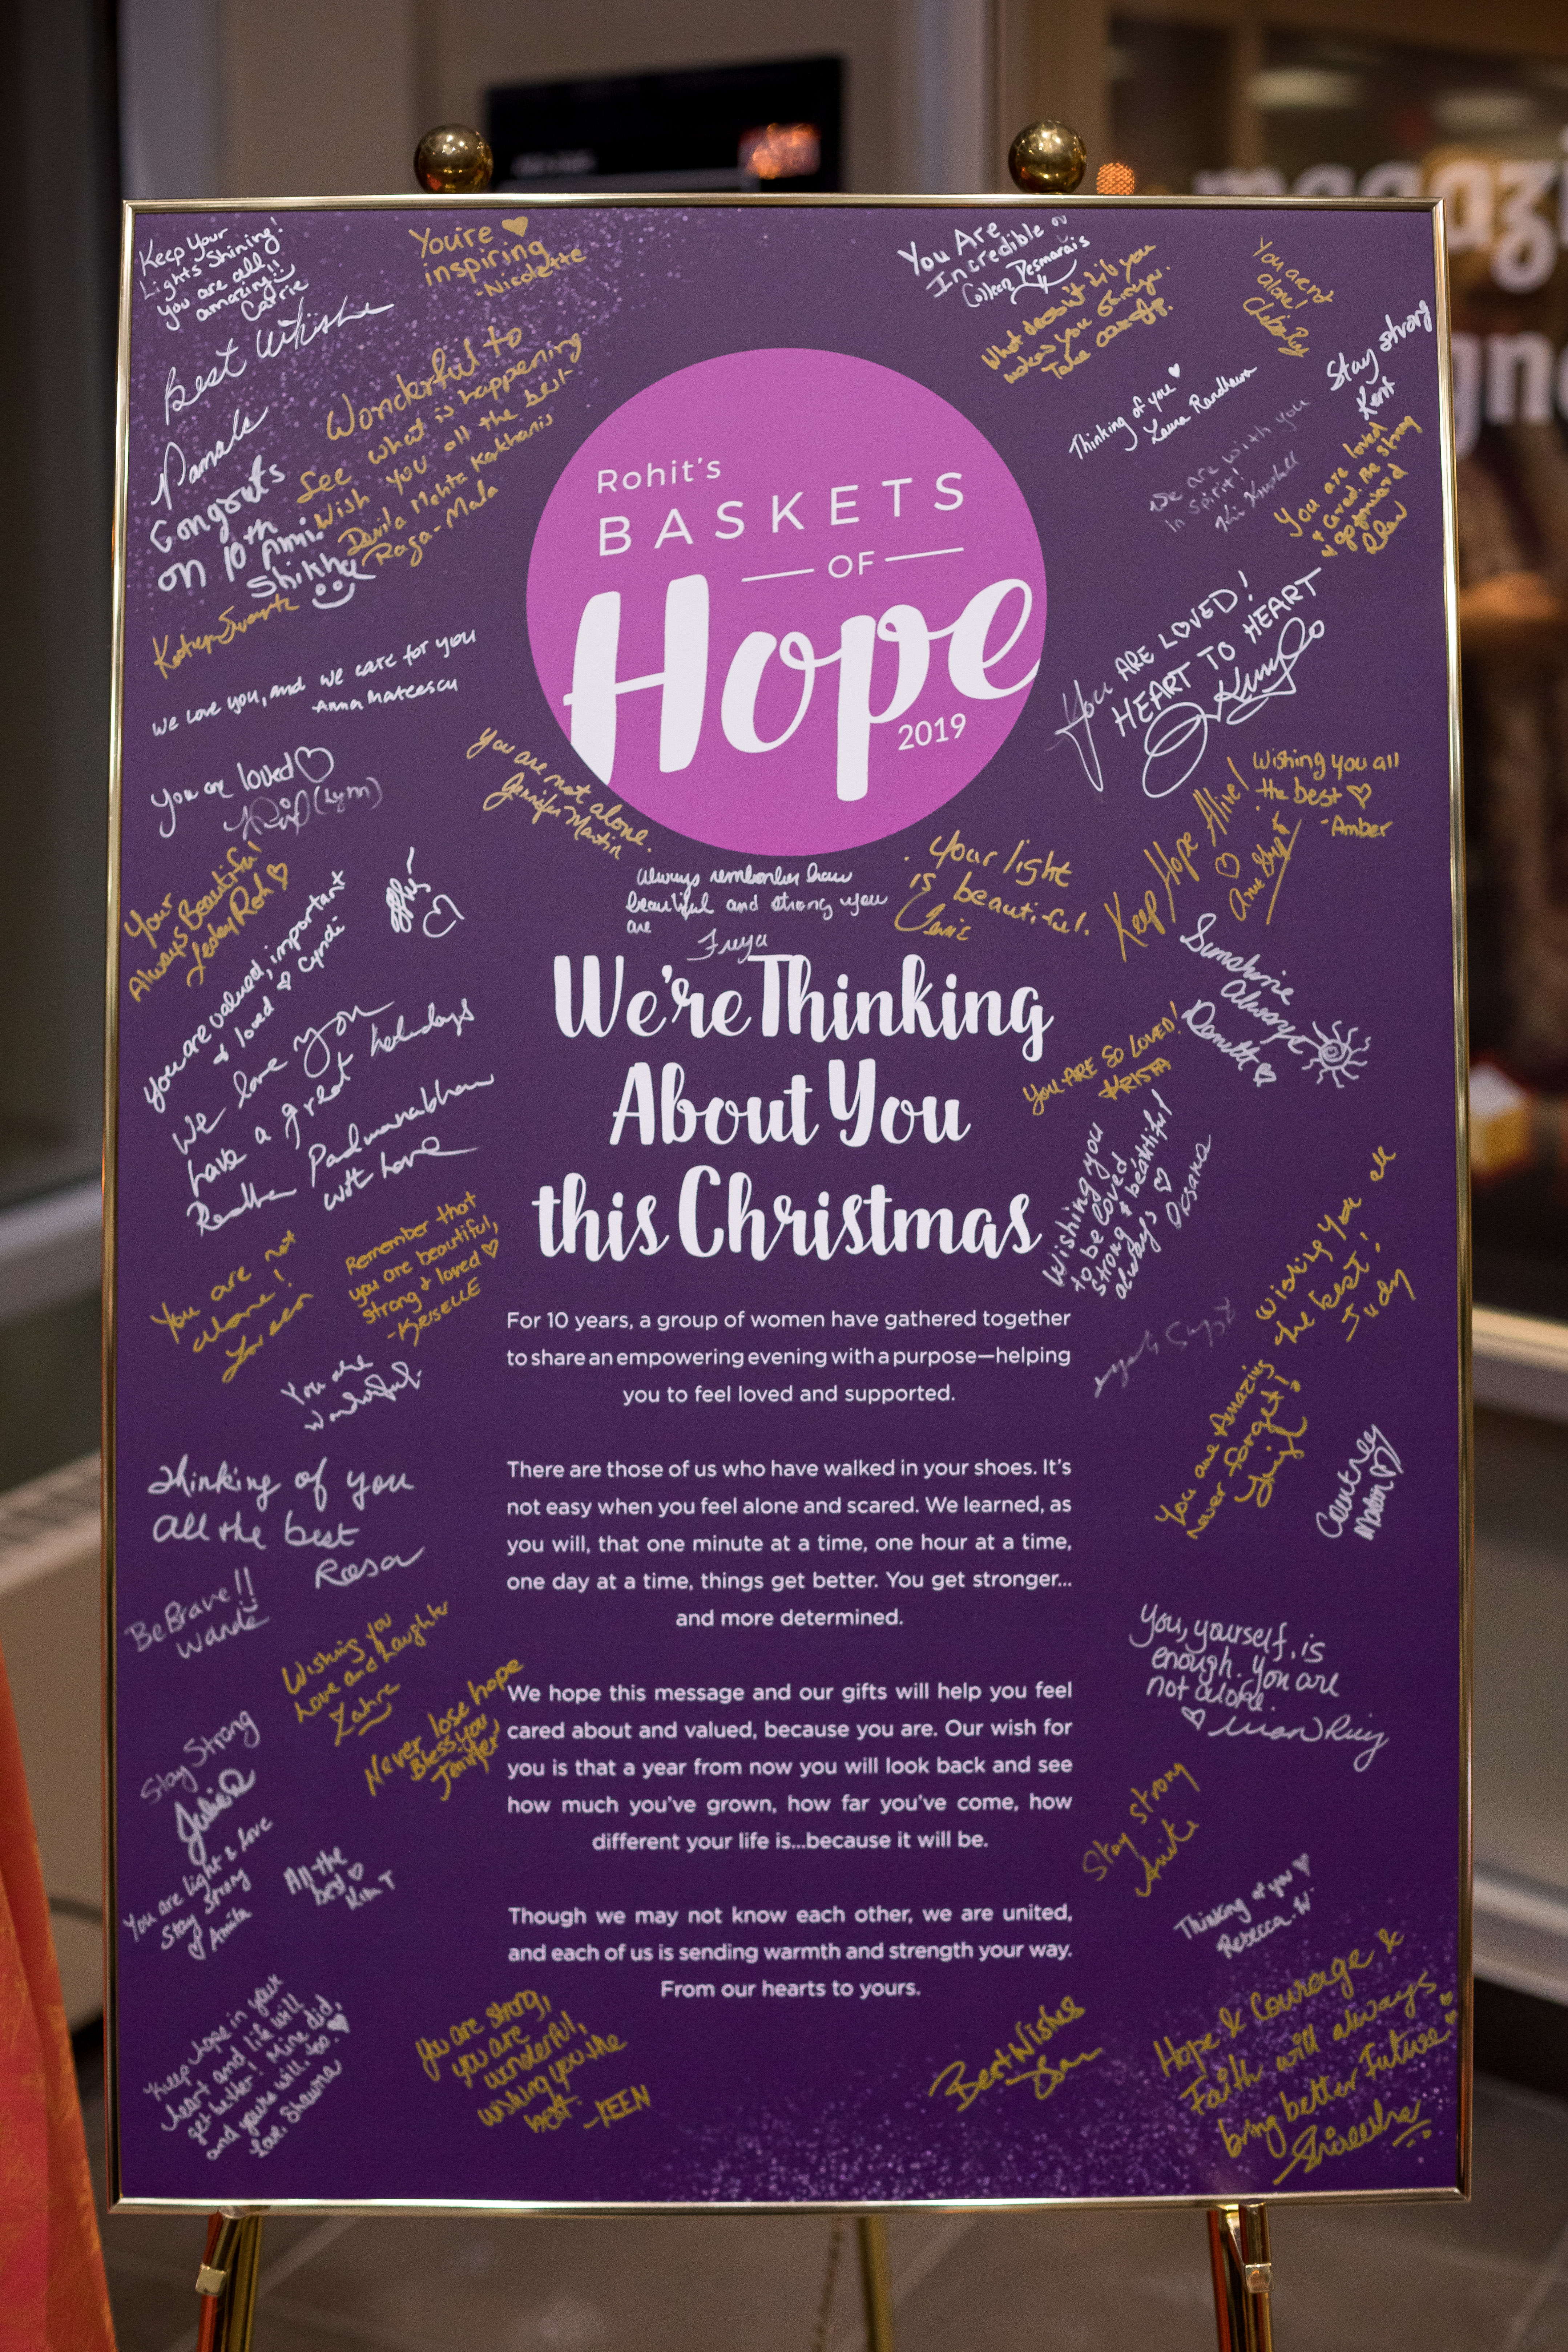 Keep Your
Lights Shining!
you are all
amazing!!
Carrie
You're
inspiring
-Nicolette
Best Wishe
Pamela
Congrats
on 10th Anni.
Shikha
Wonderful to
see what is happening
Wish you all the best-
Mehta
Raga-Mala
We love you, and we care for you
-Anna Mateescu
you are loved
(Lynn)
Your
Always Beautiful
Lesley Roh
you are valued, important
& loved Cyndi
We love you
have a great holidays
Radha Padmanabhan
with love
You are not
alone!
Loreen
Remember that
you are beautiful,
strong & loved
-KRISELLE
You are
wonderful.
Thinking of you
All the best
Reesa
Be Brave!!
Wande
Wishing you
Love and Laughter
Zahra
Never lose hope
Bless you
Jennifer
Stay Strong
Julie
You are light & love
Stay Strong
Amita
All the
best
Kim T
Keep hope in your
heart and life will
get better! Mine did,
and yours will, too.
Love, Shawna
You are strong,
you are
wonderful,
wishing you the
best.
-KEEN
You Are
Incredible
Colleen Desmarais
What doesn't kill you
makes you stronger.
Take care
You arent
alone!
Stay strong
Kent
Thinking of you
Laura Randhawa
We are with you
in spirit!
You are loved
& cared. Be strong
& go forward
YOU ARE LOVED!
HEART TO HEART
Rohit's
BASKETS
OF
Hope
2019
You are not alone.
Jennifer Martin
Always remember how
beautiful and strong you
are
Freya
Your light
is beautiful.
Keep Hope Alive!
Wishing you all
the best
-Amber
Sunshine
Always
YOU ARE SO LOVED!
KRISTA
Wishing you
to be loved
strong & beautiful
always
Oksana
Wishing you all
the best!
Judy
You are Amazing
never forget!
Courtney
We're Thinking
About You
this Christmas
For 10 years, a group of women have gathered together
to share an empowering evening with a purpose—helping
you to feel loved and supported.
There are those of us who have walked in your shoes. It's
not easy when you feel alone and scared. We learned, as
you will, that one minute at a time, one hour at a time,
one day at a time, things get better. You get stronger...
and more determined.
We hope this message and our gifts will help you feel
cared about and valued, because you are. Our wish for
you is that a year from now you will look back and see
how much you've grown, how far you've come, how
different your life is...because it will be.
Though we may not know each other, we are united,
and each of us is sending warmth and strength your way.
From our hearts to yours.
You, yourself, is
enough. You are
not alone.
Stay strong
Anita
Thinking of you
Rebecca. W
Best Wishes
Hope & Courage &
Faith will always
bring better Future